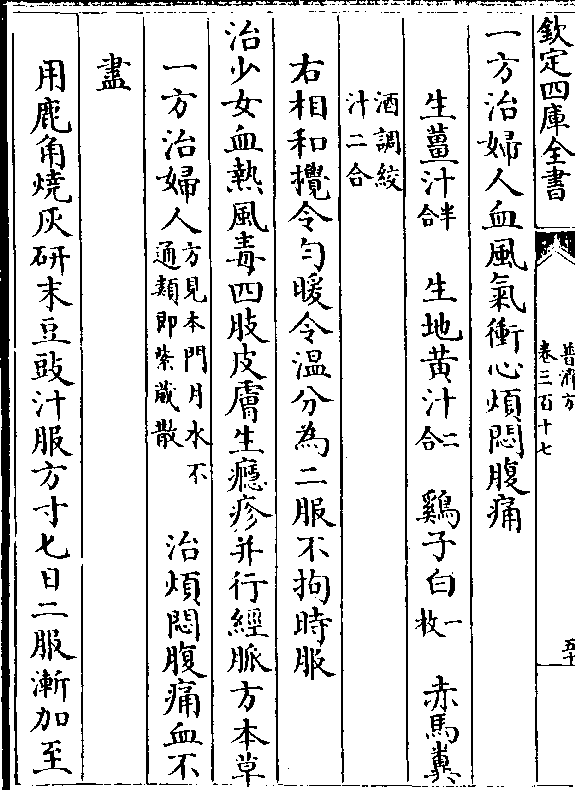 欽定四庫全書
普濟方
卷三百十七
五十
一方治婦人血風氣衝心煩悶腹痛
生薑汁半合　生地黃汁二合　鷄子白一枚　赤馬糞
酒調絞汁二合
右相和攪令勻暖令溫分為二服不拘時服
治少女血熱風毒四肢皮膚生癮疹并行經脈方本草
一方治婦人方見本門月水不通類即紫葳散　治煩悶腹痛血不
盡
用鹿角燒灰研末豆豉汁服方寸匕日二服漸加至